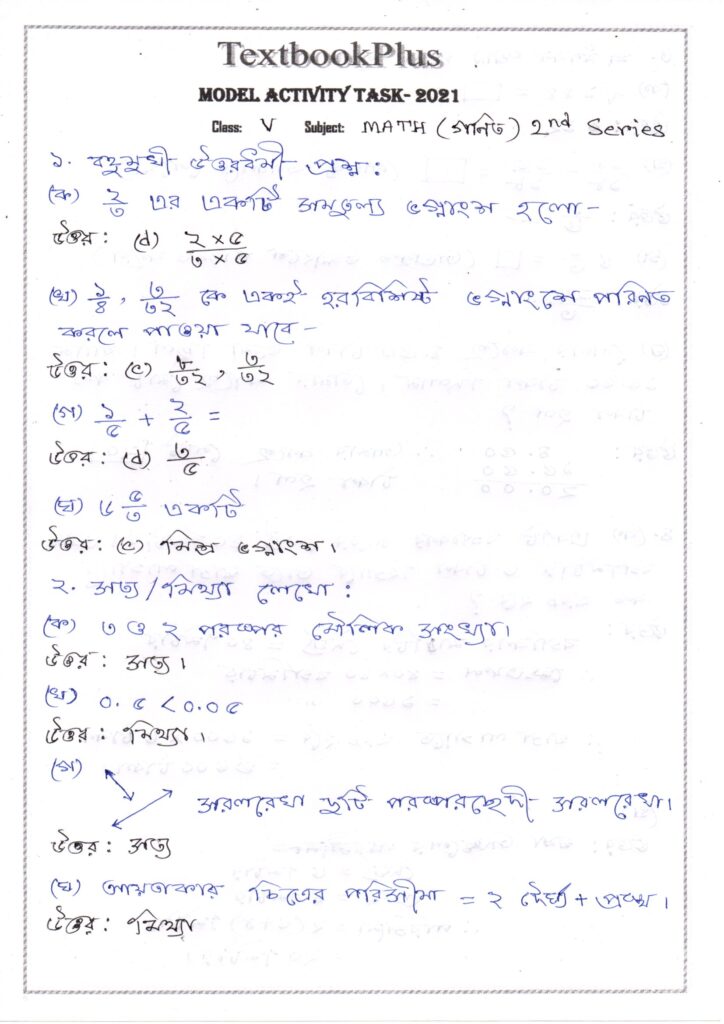 TextbookPlus
MODEL ACTIVITY TASK- 2021
Class: V Subject: MATH (গনিত) 2nd Series
১. বহুমুখী উত্তরধর্মী প্রশ্ন :
(ক) ২/৩ এর একটি সমতুল্য ভগ্নাংশ হলো -
উত্তর : (d) ২ × ৫ / ৩ × ৫
(খ) ১/৪ , ৩/৩২ কে একই হরবিশিষ্ট ভগ্নাংশে পরিনত
করলে পাওয়া যাবে -
উত্তর : (c) ৮/৩২ , ৩/৩২
(গ) ১/৫ + ২/৫ =
উত্তর : (d) ৩/৫
(ঘ) ৬ ৫/৩ একটি
উত্তর : (c) মিশ্র ভগ্নাংশ।
২. সত্য / মিথ্যা লেখো :
(ক) ৩ ও ২ পরস্পর মৌলিক সংখ্যা।
উত্তর : সত্য ।
(খ) ০.৫ < ০.০৫
উত্তর : মিথ্যা ।
(গ)
সরলরেখা দুটি পরস্পরছেদী সরলরেখা।
উত্তর : সত্য
(ঘ) আয়তাকার চিত্রের পরিসীমা = ২ দৈর্ঘ্য + প্রস্থ ।
উত্তর : মিথ্যা